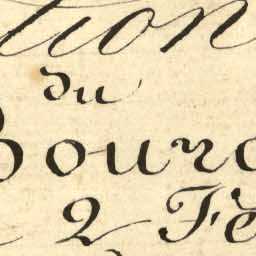 tion
du
Bourg
2 Fé